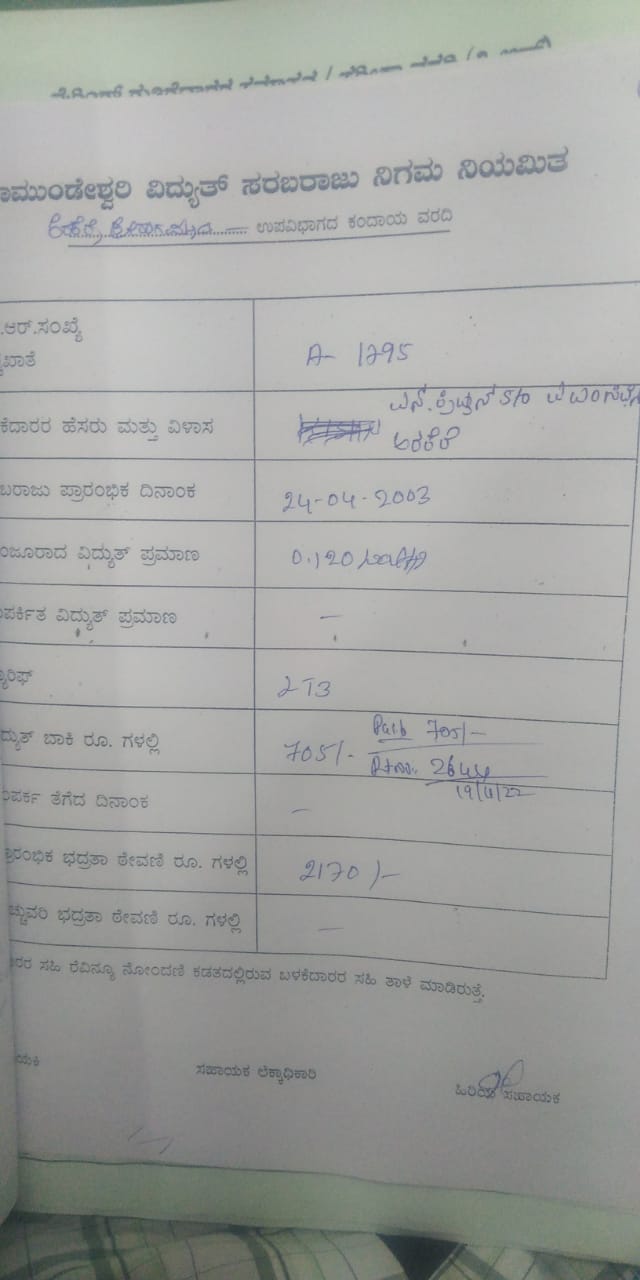 ಾಮುಂಡೇಶ್ವರಿ ವಿದ್ಯುತ್ ಸರಬರಾಜು ನಿಗಮ ನಿಯಮಿತ
ಉಪವಿಭಾಗದ ಕಂದಾಯ ವರದಿ
.ಆರ್.ಸಂಖ್ಯೆ
ಖಾತೆ
A- 1295
ಕೆದಾರರ ಹೆಸರು ಮತ್ತು ವಿಳಾಸ
S/o
ಅರಕೆರೆ
ಬರಾಜು ಪ್ರಾರಂಭಿಕ ದಿನಾಂಕ 24-04-2003
ಂಜೂರಾದ ವಿದ್ಯುತ್ ಪ್ರಮಾಣ 0.120
ಪರ್ಕಿತ ವಿದ್ಯುತ್ ಪ್ರಮಾಣ —
ಯಾರಿಫ್ 2T3
ದ್ಯುತ್ ಬಾಕಿ ರೂ. ಗಳಲ್ಲಿ 705/-
Paid 705/-
19/4/22
ಂಪರ್ಕ ತೆಗೆದ ದಿನಾಂಕ —
ಪ್ರಾರಂಭಿಕ ಭದ್ರತಾ ಠೇವಣಿ ರೂ. ಗಳಲ್ಲಿ 2170/-
ಚ್ಚುವರಿ ಭದ್ರತಾ ಠೇವಣಿ ರೂ. ಗಳಲ್ಲಿ —
ರರ ಸಹಿ ರೆವಿನ್ಯೂ ನೋಂದಣಿ ಕಡತದಲ್ಲಿರುವ ಬಳಕೆದಾರರ ಸಹಿ ತಾಳೆ ಮಾಡಿರುತ್ತೆ.
ಯಕಿ ಸಹಾಯಕ ಲೆಕ್ಕಾಧಿಕಾರಿ ಹಿರಿಯ ಸಹಾಯಕ